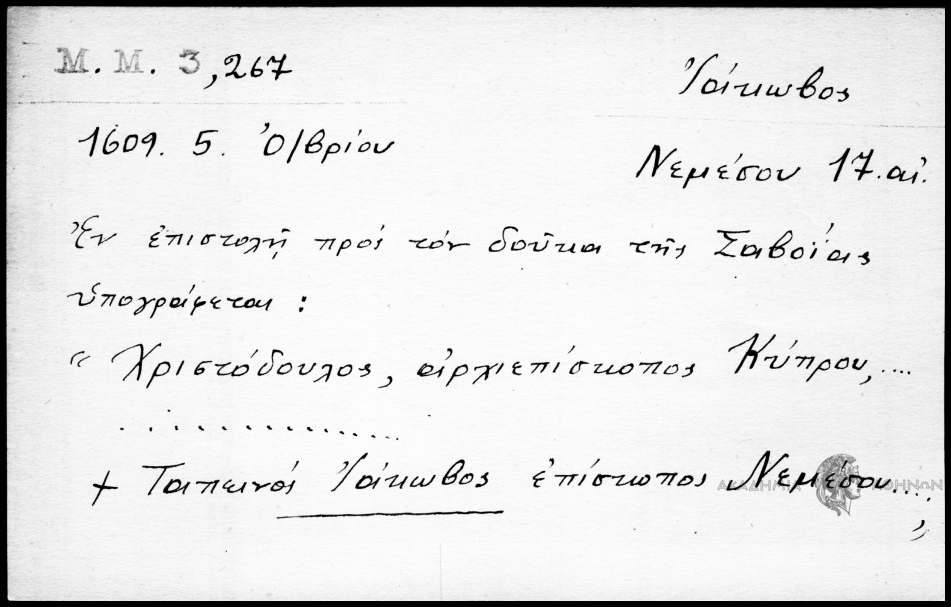 Μ. Μ. 3, 267
Ἰάκωβος
1609. 5. Ὀ/βρίου
Νεμέσου 17. αἰ.
Ἐν ἐπιστολῇ πρός τόν δοῦκα τῆς Σαβοΐας
ὑπογράφεται :
“ Χριστόδουλος, ἀρχιεπίσκοπος Κύπρου, ....
..............
+ Ταπεινός Ἰάκωβος ἐπίσκοπος Νεμέσου.... „
ΑΚΑΔΗΜΙΑ ΑΘΗΝΩΝ